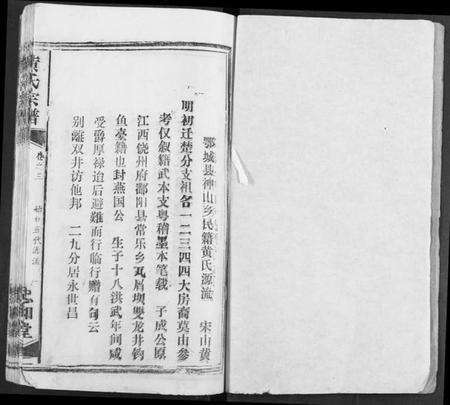 鄂城县神山乡民籍黄氏源流　宋山黄
明初迁楚分支祖名一二三四四大房裔莫山参
考仅叙籍武本支粤稽墨本笔载　子成公原
江西饶州府鄱阳县常乐乡瓦屑坝双龙井钩
鱼台籍也封燕国公　生子十八洪武年间咸
受爵厚禄迨后避难而行临行赠有句云
别离双井访他邦　二九分居永世昌
黄氏宗谱
卷之三
五代源流
堂